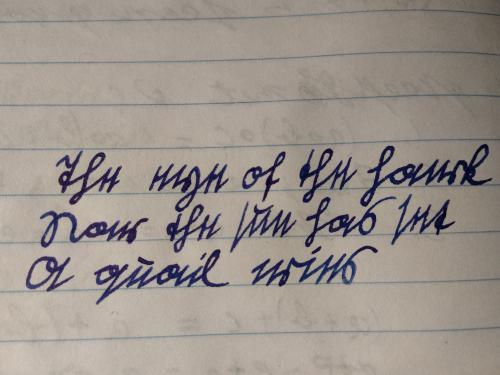 The eye of the hawk
Now the sun has set
A quail cries